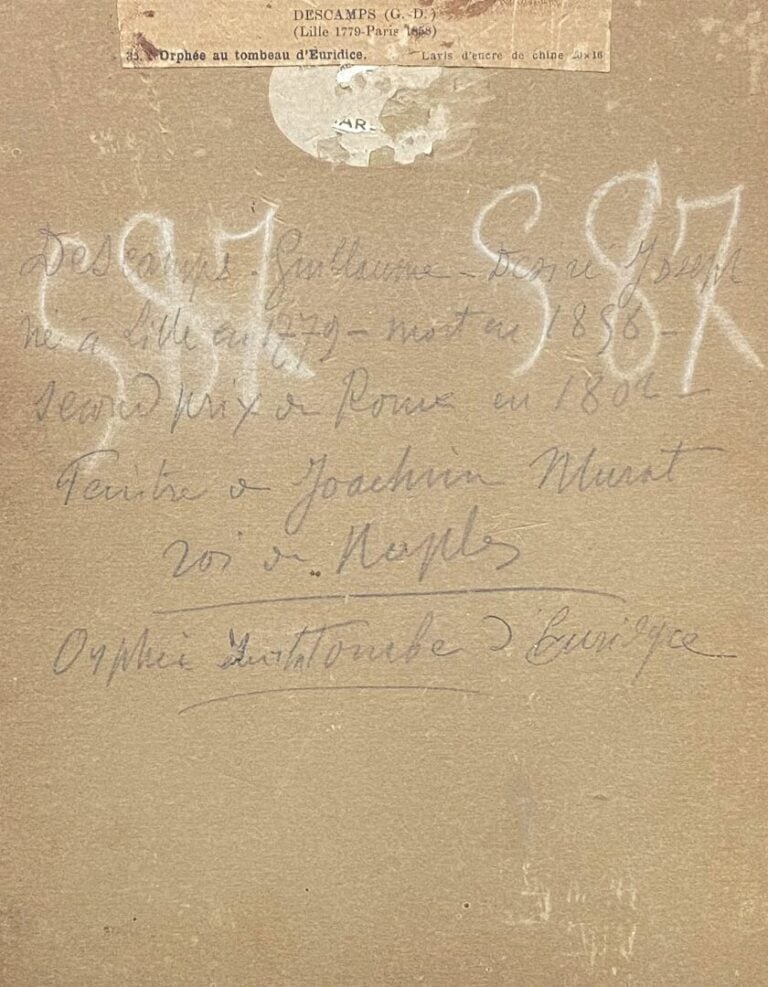 DESCAMPS (G.-D.)
(Lille 1779-Paris 1858)
35. Orphée au tombeau d'Euridice. Lavis d'encre de chine 20×16
AR
S87 S87
Descamps - Guillaume - Desiré Joseph
né à Lille en 1779 - mort en 1858 -
second prix de Rome en 1802 -
Peintre de Joachim Murat
roi de Naples
Orphée Tombe d'Euridyce